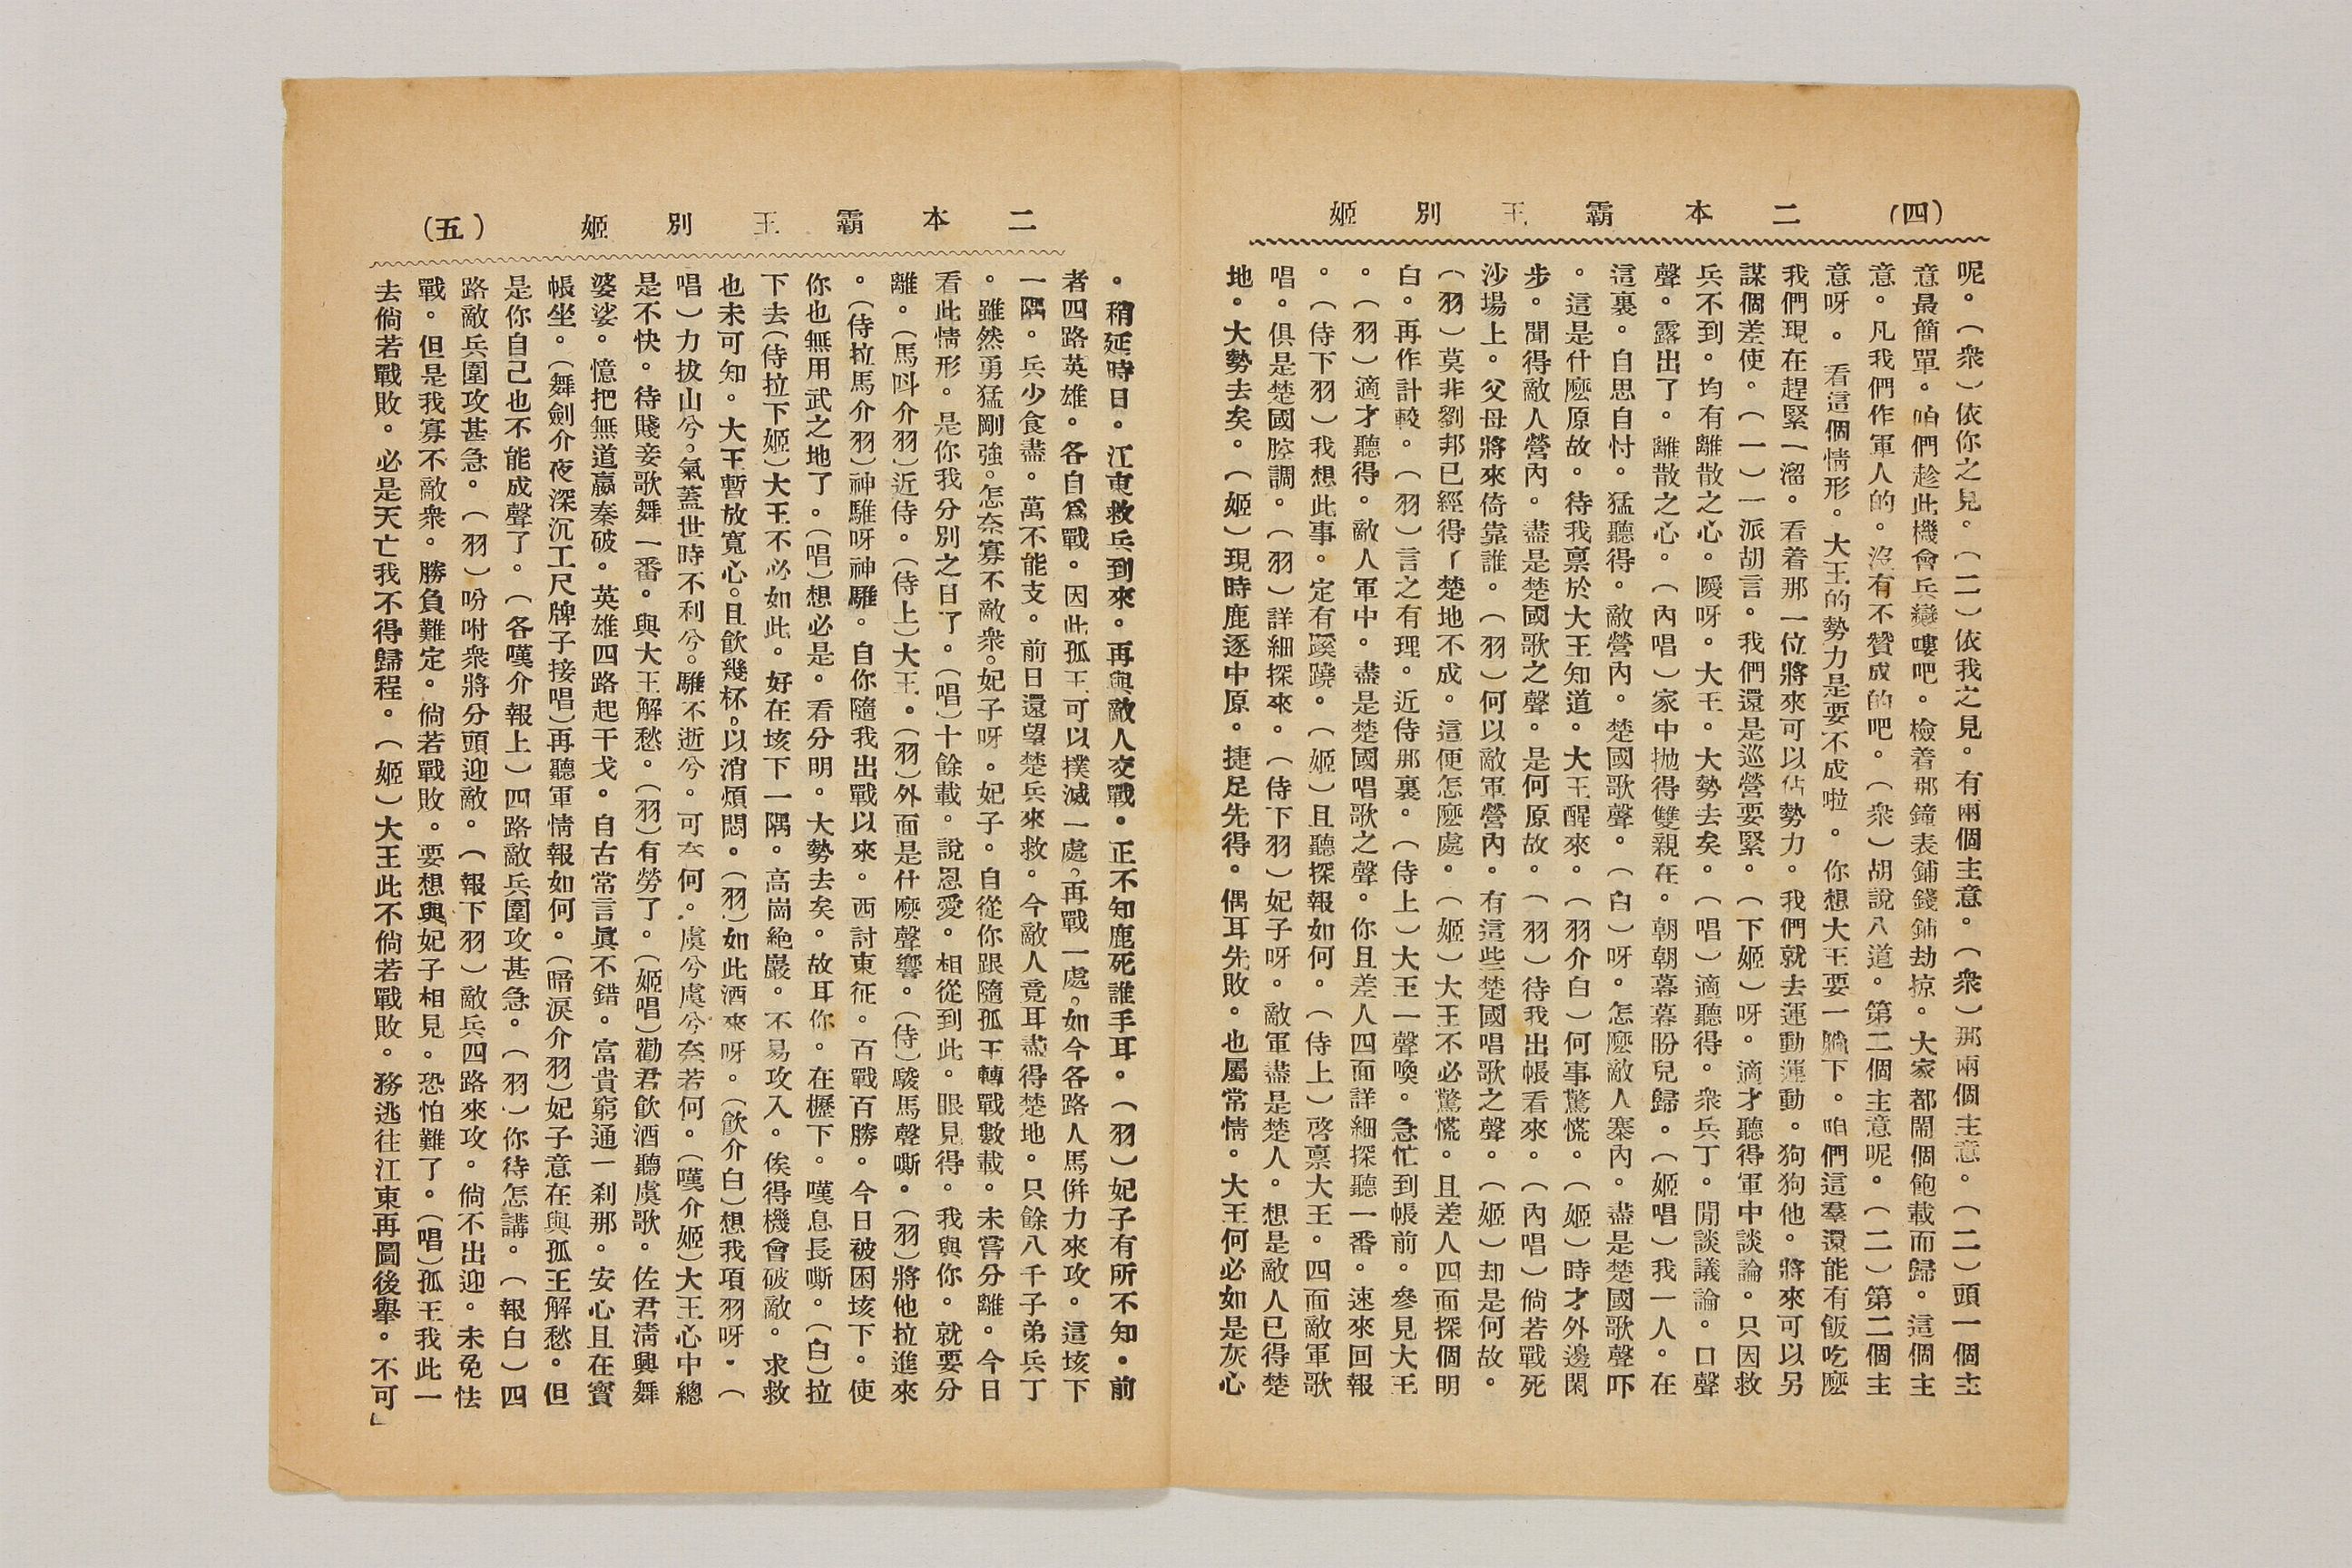 二本霸王別姬 (四)
呢。(衆)依你之見。(二)依我之見。有兩個主意。(衆)那兩個主意。(二)頭一個主
意最簡單。咱們趁此機會兵變嘍吧。檢着那鐘表鋪錢鋪劫掠。大家都鬧個飽載而歸。這個主
意。凡我們作軍人的。沒有不贊成的吧。(衆)胡說八道。第二個主意呢。(二)第二個主
意呀。看這個情形。大王的勢力是要不成啦。你想大王要一躺下。咱們這羣還能有飯吃麼
我們現在趕緊一溜。看着那一位將來可以佔勢力。我們就去運動運動。狗狗他。將來可以另
謀個差使。(一)一派胡言。我們還是巡營要緊。(下姬)呀。適才聽得軍中談論。只因救
兵不到。均有離散之心。噯呀。大王。大勢去矣。(唱)適聽得。衆兵丁。閒談議論。口聲
聲。露出了。離散之心。(內唱)家中拋得雙親在。朝朝暮暮盼兒歸。(姬唱)我一人。在
這裏。自思自忖。猛聽得。敵營內。楚國歌聲。(白)呀。怎麼敵人寨內。盡是楚國歌聲吓
。這是什麼原故。待我禀於大王知道。大王醒來。(羽介白)何事驚慌。(姬)時才外邊閑
步。聞得敵人營內。盡是楚國歌之聲。是何原故。(羽)待我出帳看來。(內唱)倘若戰死
沙場上。父母將來倚靠誰。(羽)何以敵軍營內。有這些楚國唱歌之聲。(姬)却是何故。
(羽)莫非劉邦已經得了楚地不成。這便怎麼處。(姬)大王不必驚慌。且差人四面探個明
白。再作計較。(羽)言之有理。近侍那裏。(侍上)大王一聲喚。急忙到帳前。參見大王
。(羽)適才聽得。敵人軍中。盡是楚國唱歌之聲。你且差人四面詳細探聽一番。速來回報
。(侍下羽)我想此事。定有蹊蹺。(姬)且聽探報如何。(侍上)啓禀大王。四面敵軍歌
唱。俱是楚國腔調。(羽)詳細探來。(侍下羽)妃子呀。敵軍盡是楚人。想是敵人已得楚
地。大勢去矣。(姬)現時鹿逐中原。捷足先得。偶耳先敗。也屬常情。大王何必如是灰心
二本霸王別姬 (五)
。稍延時日。江東救兵到來。再與敵人交戰。正不知鹿死誰手耳。(羽)妃子有所不知。前
者四路英雄。各自爲戰。因此孤王可以撲滅一處。再戰一處。如今各路人馬併力來攻。這垓下
一隅。兵少食盡。萬不能支。前日還望楚兵來救。今敵人竟耳盡得楚地。只餘八千子弟兵丁
。雖然勇猛剛強。怎奈寡不敵衆。妃子呀。妃子。自從你跟隨孤王轉戰數載。未嘗分離。今日
看此情形。是你我分別之日了。(唱)十餘載。說恩愛。相從到此。眼見得。我與你。就要分
離。(馬呌介羽)近侍。(侍上)大王。(羽)外面是什麼聲響。(侍)駿馬聲嘶。(羽)將他拉進來
。(侍拉馬介羽)神騅呀神騅。自你隨我出戰以來。西討東征。百戰百勝。今日被困垓下。使
你也無用武之地了。(唱)想必是。看分明。大勢去矣。故耳你。在櫪下。嘆息長嘶。(白)拉
下去(侍拉下姬)大王不必如此。好在垓下一隅。高崗絕巖。不易攻入。俟得機會破敵。求救
也未可知。大王暫放寬心。且飲幾杯。以消煩悶。(羽)如此洒來呀。(飲介白)想我項羽呀。(
唱)力拔山兮。氣蓋世時不利兮。騅不逝兮。可奈何。虞兮虞兮奈若何。(嘆介姬)大王心中總
是不快。待賤妾歌舞一番。與大王解愁。(羽)有勞了。(姬唱)勸君飲酒聽虞歌。佐君淸興舞
婆娑。憶把無道嬴秦破。英雄四路起干戈。自古常言眞不錯。富貴窮通一刹那。安心且在寳
帳坐。(舞劍介夜深沉工尺牌子接唱)再聽軍情報如何。(暗淚介羽)妃子意在與孤王解愁。但
是你自己也不能成聲了。(各嘆介報上)四路敵兵圍攻甚急。(羽)你待怎講。(報白)四
路敵兵圍攻甚急。(羽)吩咐衆將分頭迎敵。(報下羽)敵兵四路來攻。倘不出迎。未免怯
戰。但是我寡不敵衆。勝負難定。倘若戰敗。要想與妃子相見。恐怕難了。(唱)孤王我此一
去倘若戰敗。必是天亡我不得歸程。(姬)大王此不倘若戰敗。務逃往江東再圖後舉。不可」